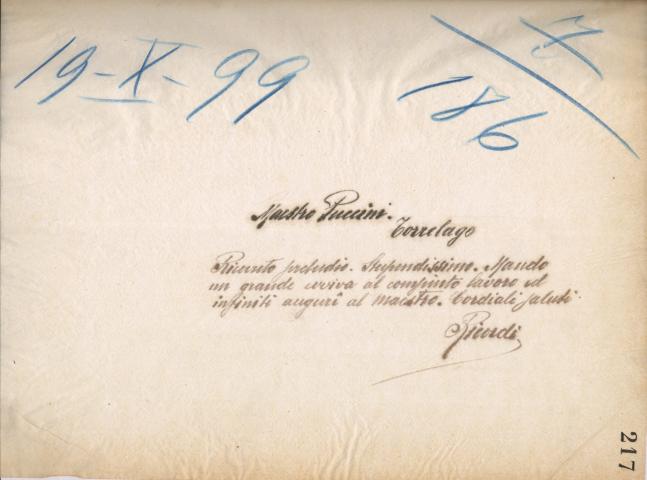 19-X-99
7
186
Maestro Puccini.
Torrelago
Ricevuto preludio. Stupendissimo. Mando
un grande evviva al compiuto lavoro ed
infiniti augurî al maestro. Cordiali saluti
Ricordi
217